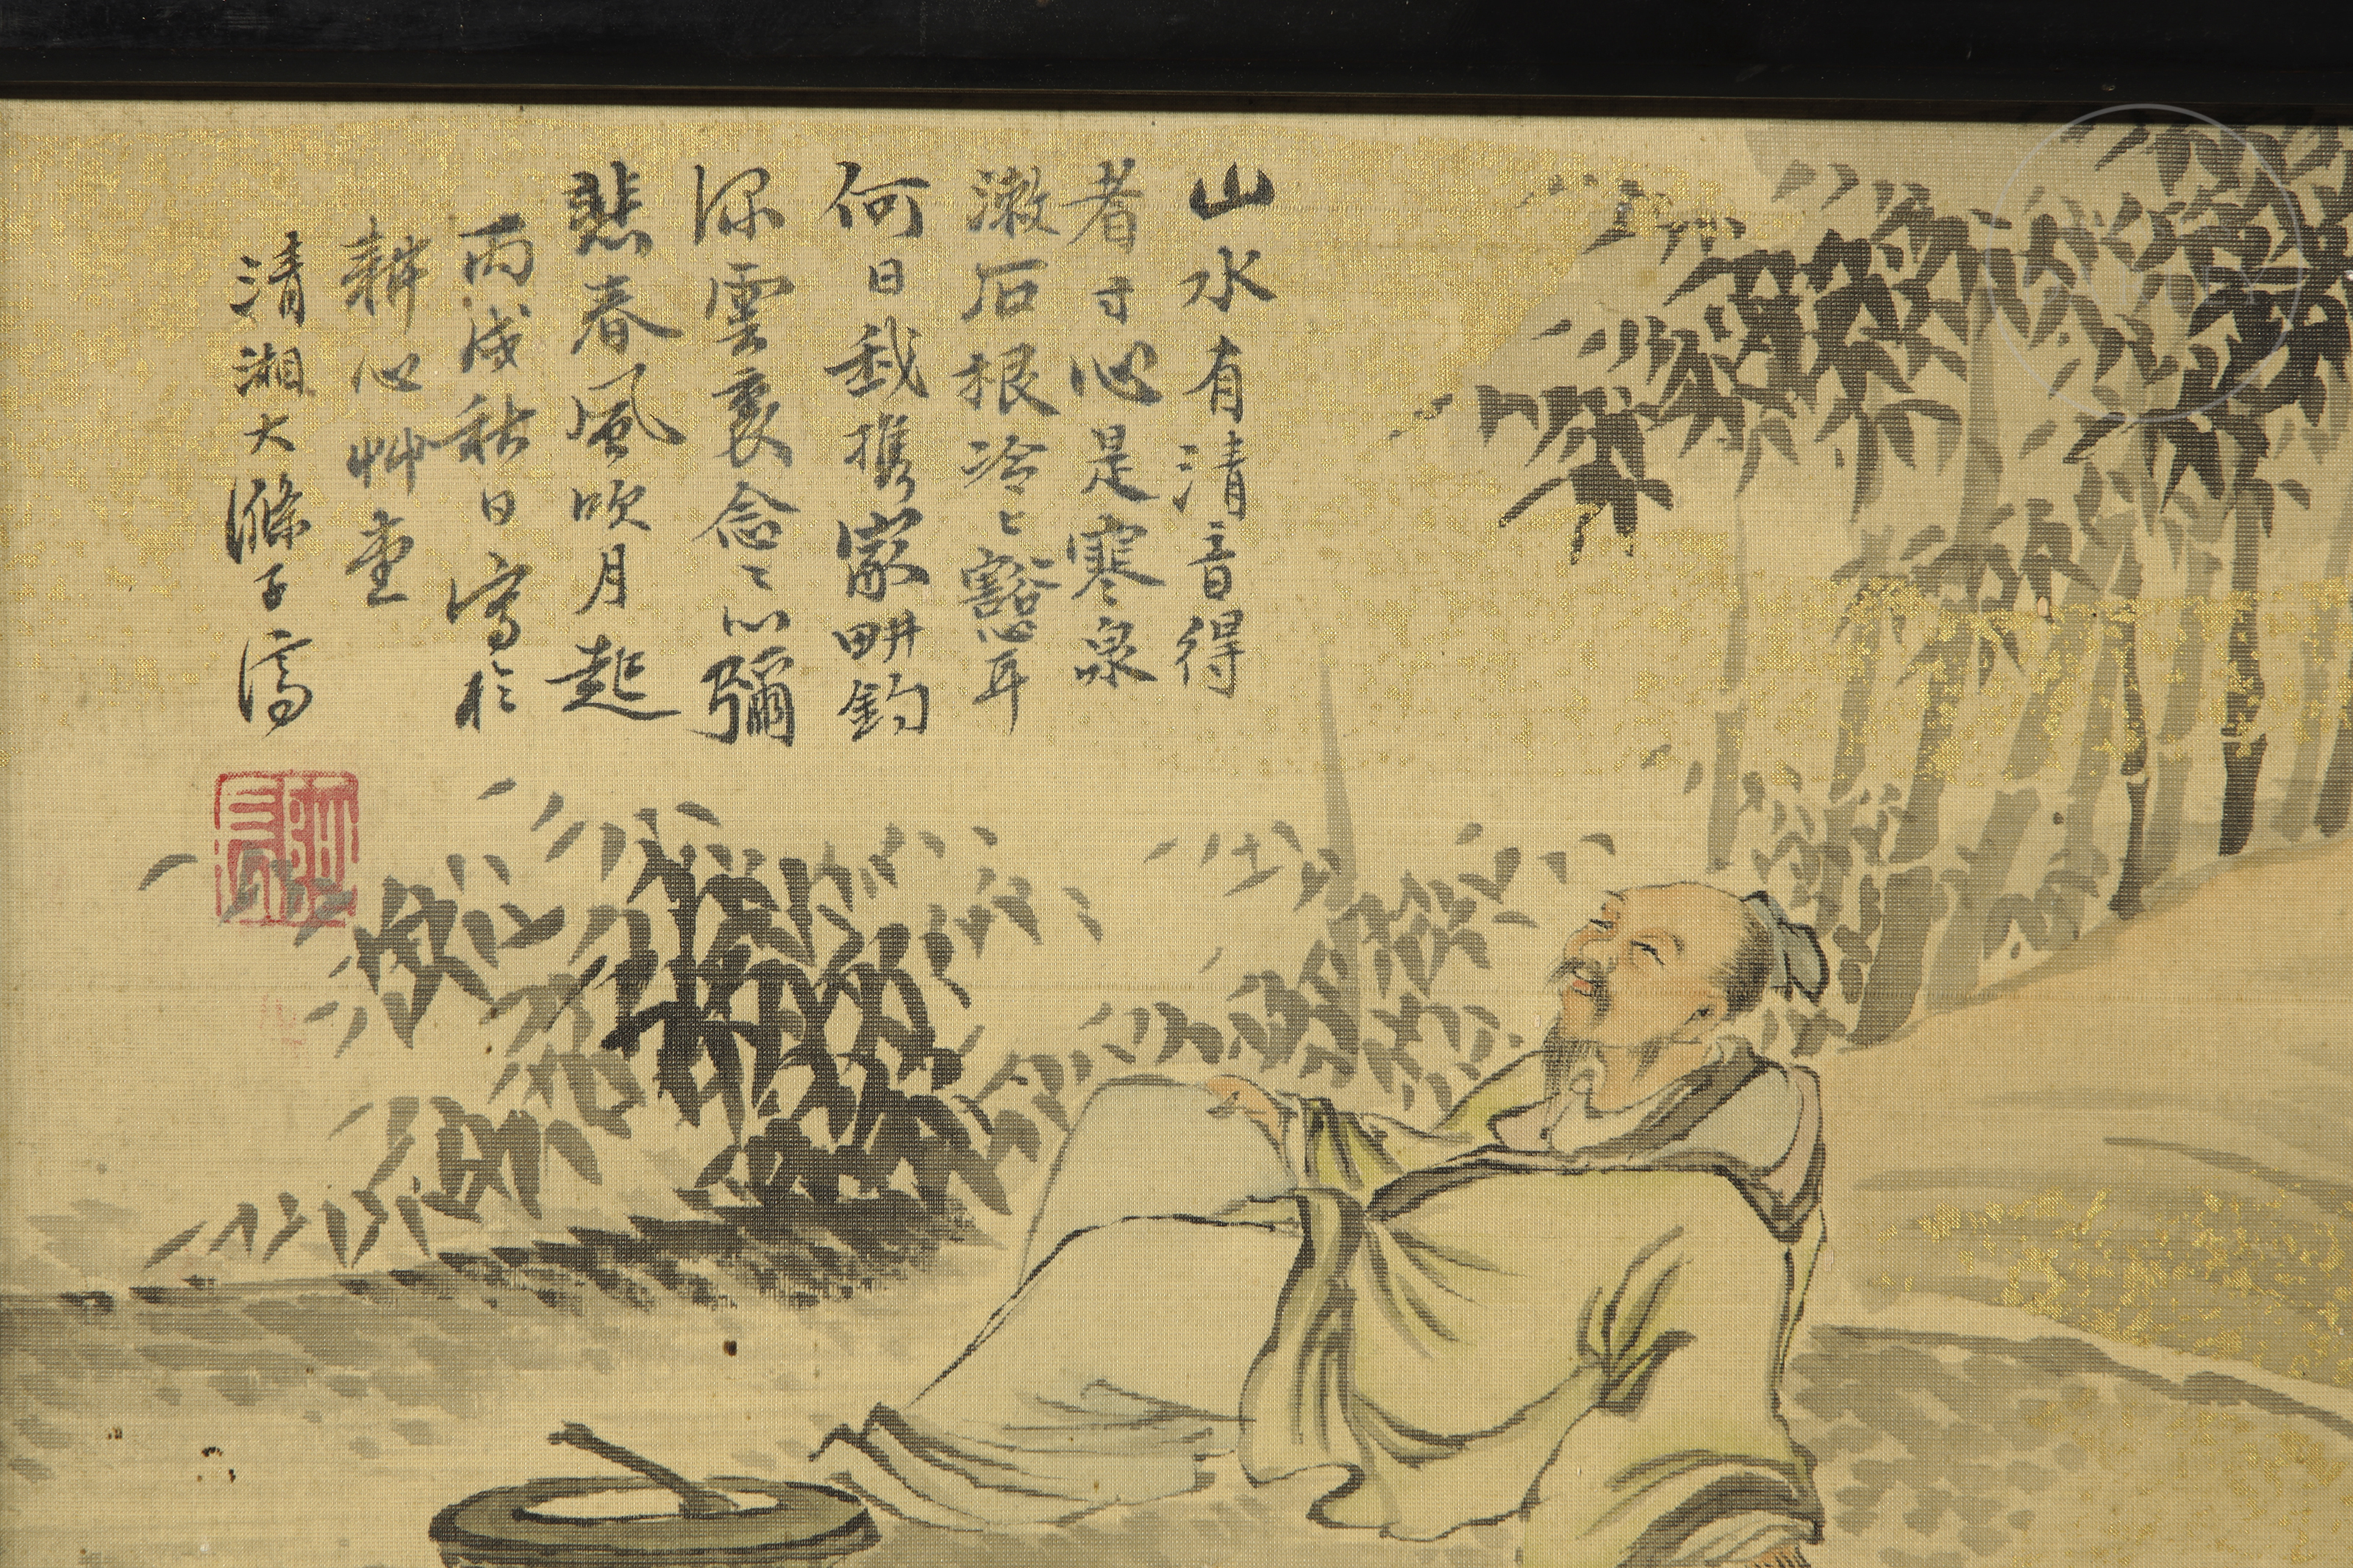 山水有清音得
者寸心是寒泉
漱石根泠〻豁心耳
何日我携家畊釣
深雲裏念〻心彌
悲春風吹月起
丙戌秋日寫於
耕心艸堂
清湘大滌子濟